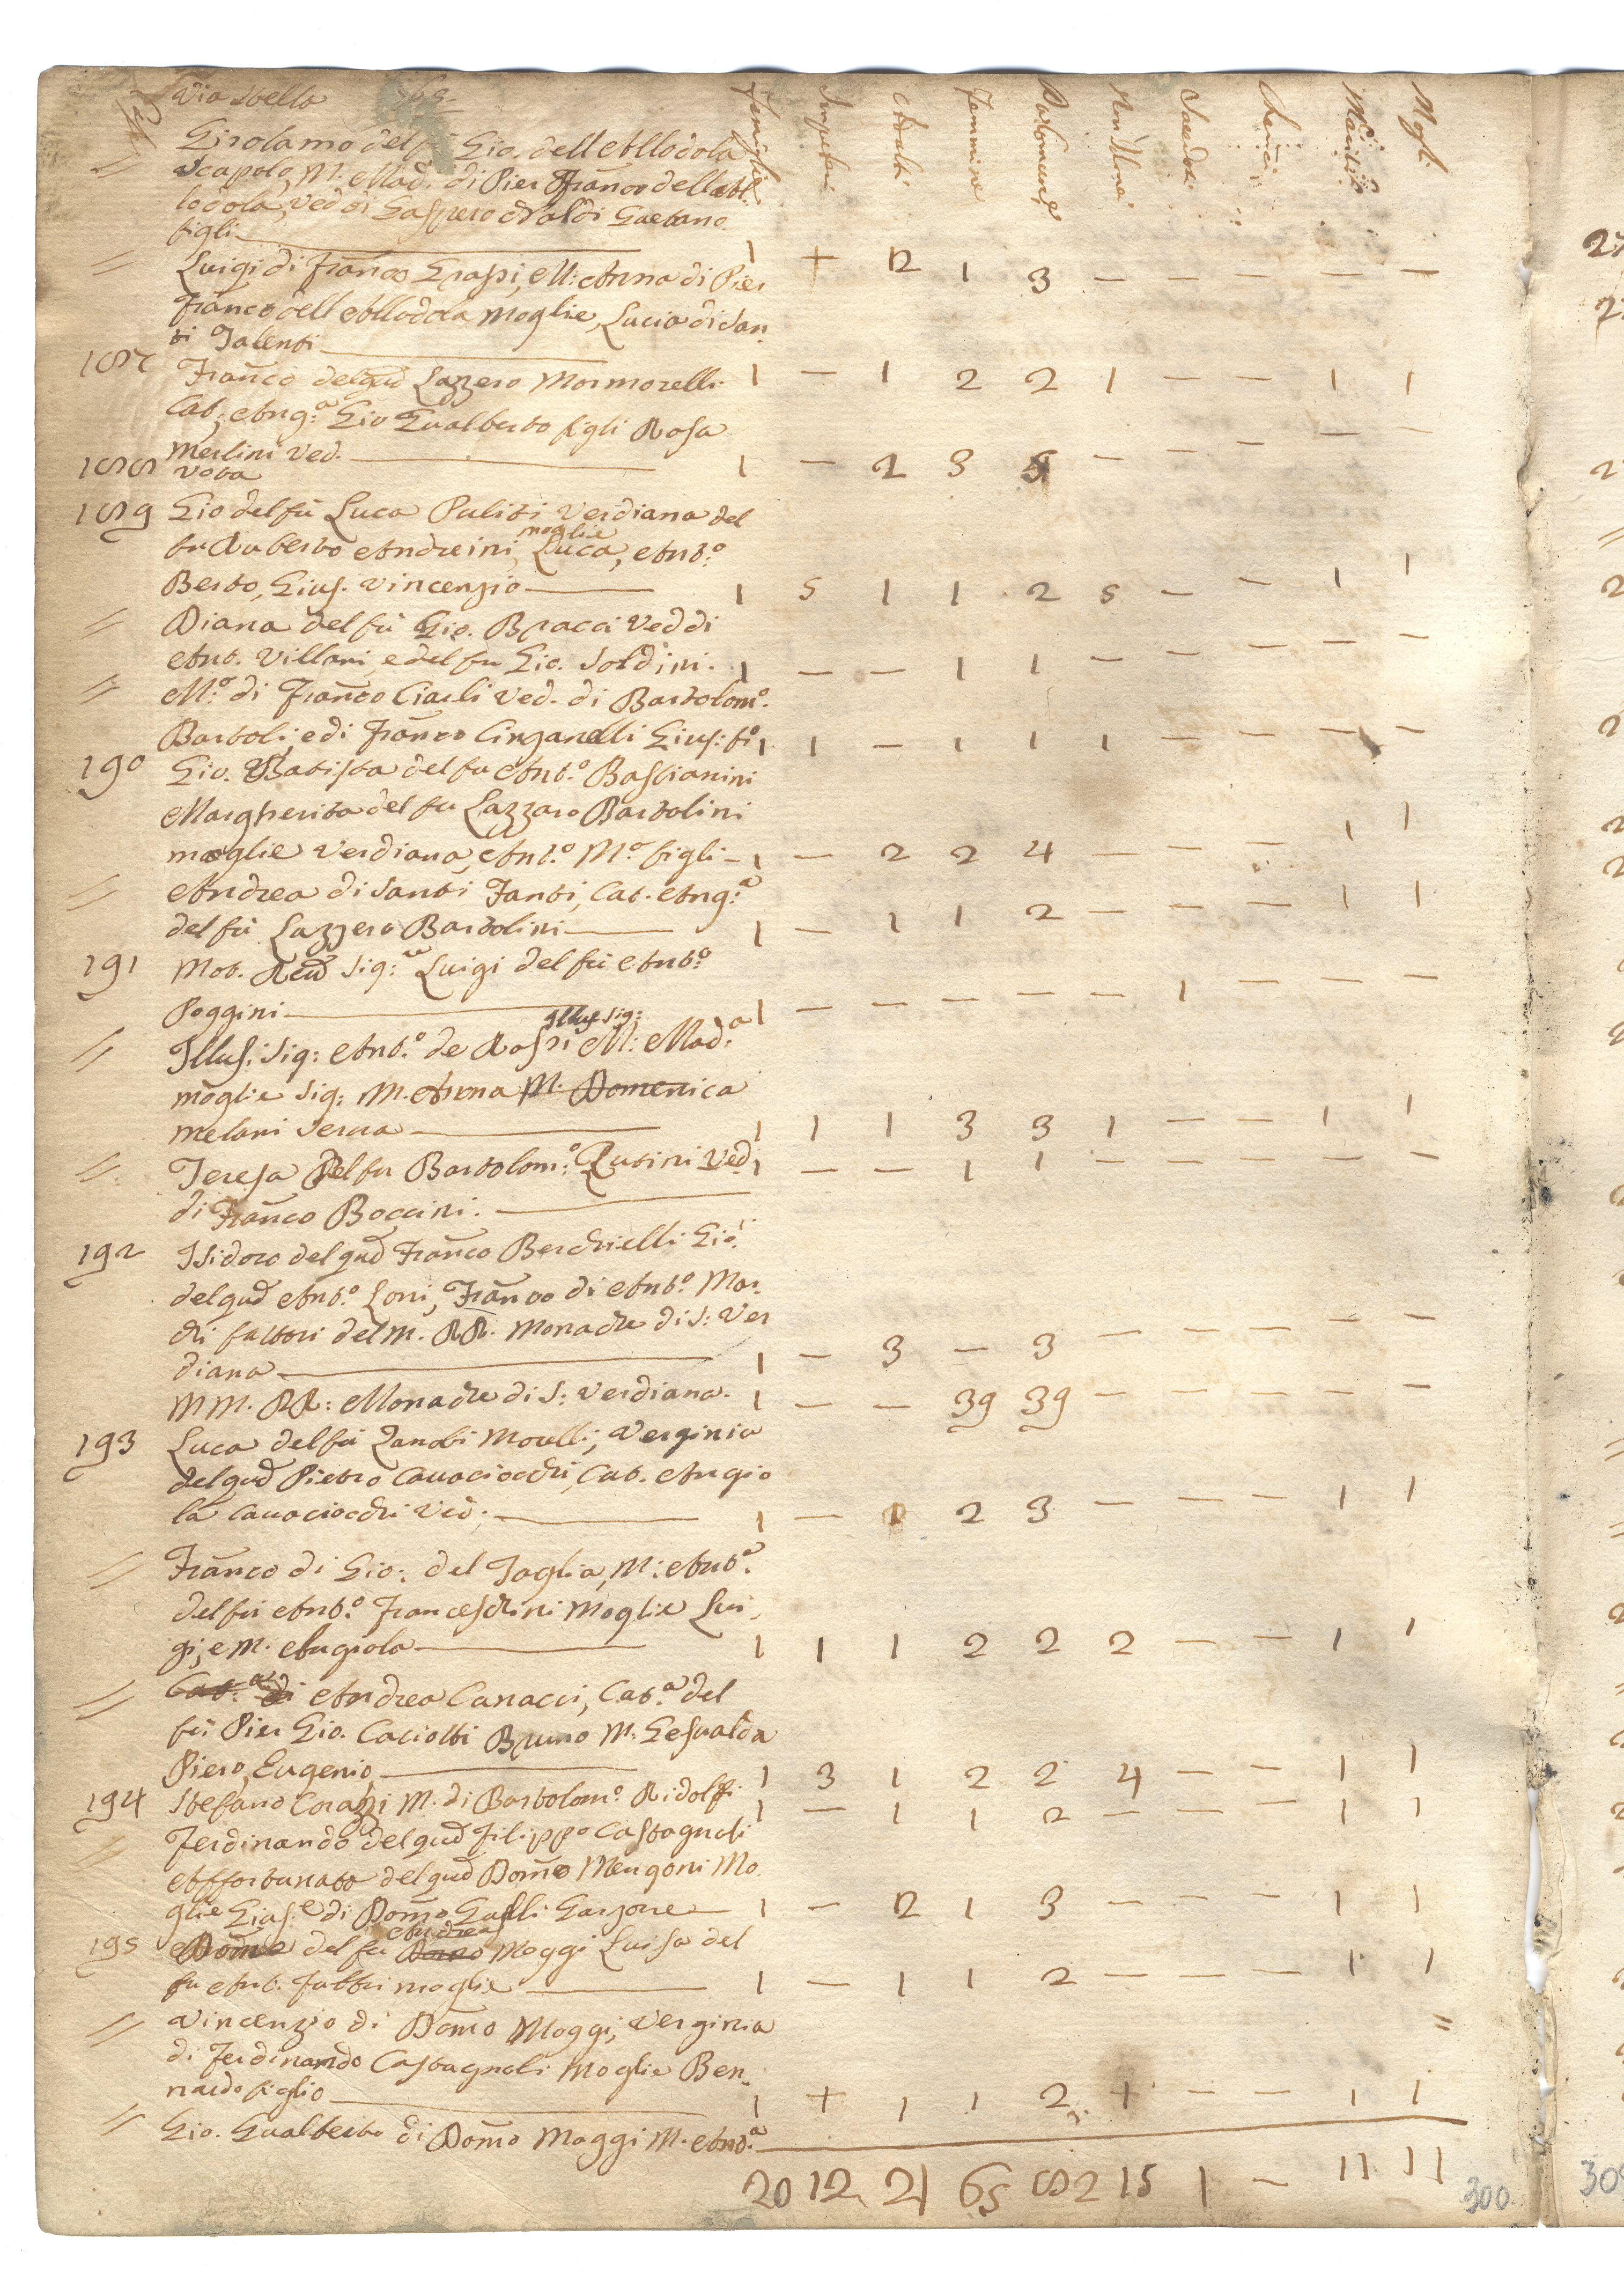 Via Bella
Famiglie Impuberi Adulti Femmine Non Com: Sacerdoti Cherici Mariti Mogli
Girolamo del Gio. dell Allodola
scapolo, M. Mad. di Pier Franco dell Al-
lodola, Ved di Gaspero Naldi Gaetano
figli 1 + 2 1 3 — — — — —
= Luigi di Franco Grassi, M: Anna di Pier
Franco dell Allodola Moglie, Lucia di San-
ti Talenti 1 — 1 2 2 1 — — 1 1
187 Franco del qud Lazzero Mormorelli
Cat, Ang:a Gio Gualberto figli Rosa
Merlini Ved. 1 — 2 3 5 — — — — —
188 Vota
189 Gio del fù Luca Puliti Verdiana del
fu Ruberto Andreini, moglie Luca, Ant:o
Berto, Gius. Vincenzio 1 5 1 1 2 5 — — 1 1
= Diana del fù Gio. Bracci Ved di
Ant. Villani, e del fu Gio. Soldini. 1 — — 1 1 — — — — —
= M:a di Franco Ciarli Ved. di Bartolom:o
Bartoli, e di Franco Cinganelli Gius: fi:o 1 1 — 1 1 1 — — — —
190 Gio. Batista del fu Ant:o Bastianini
Margherita del fu Lazzaro Bartolini
moglie Verdiana, Ant:o M:a figli — 1 — 2 2 4 — — — 1 1
= Andrea di Santi Fanti, Cat. Ang:a
del fù Lazzero Bartolini 1 — 1 1 2 — — — 1 1
191 Mot. Reud Sig:re Luigi del fù Ant:o
Poggini 1 — — — — — 1 — — —
= Illus: Sig: Ant:o de Rossi Illus Sig: M: Mad:a
moglie Sig: M. Anna M. Domenica
Melani Serva 1 1 1 3 3 1 — — 1 1
= Teresa Del fu Bartolom:o Rutini Ved 1 — — 1 1 — — — — —
di Franco Boccini.
192 Isidoro del qud Franco Berchielli Gio:
del qud Ant:o Loni, Franco di Ant:o Mar-
chi fattori del M. RR. Monache di S: Ver
diana 1 — 3 — 3 — — — — —
MM. RR: Monache di S: Verdiana. 1 — — 39 39 — — — — —
193 Luca del fù Zanobi Morelli, Verginia
del qud Pietro Cavaciocchi, Cat. Angio
la Cavaciocchi Ved: 1 — 1 2 3 — — — 1 1
= Franco di Gio: del Taglia, M: Ant:a
del fù Ant:o Franceschini Moglie Lui-
gi, e M. Angiola 1 1 1 2 2 2 — — 1 1
= Cat:a di Andrea Canacci, Cat:a del
fù Pier Gio. Caciotti Bruno M: Gesualda
Piero, Eugenio 1 3 1 2 2 4 — — 1 1
194 Stefano Corazzi M. di Bartolom:o Ridolfi 1 — 1 1 2 — — — 1 1
= Ferdinando del qud Filippo Castagnoli
Affortunato del qud Domo Mengoni Mo
glie Gius:e di Domo Galli Garzone — 1 — 2 1 3 — — — 1 1
195 Domo del fù Domo Andrea Moggi Luisa del
fu Ant. Fabbri moglie 1 — 1 1 2 — — — 1 1
= Vincenzio di Domo Moggi, Verginia
di Ferdinando Castagnoli Moglie Ber-
nardo figlio 1 + 1 1 2 + — — 1 1
= Gio. Gualberto di Domo Moggi M. Ant:a
20 12 21 65 82 15 1 — 11 11
300